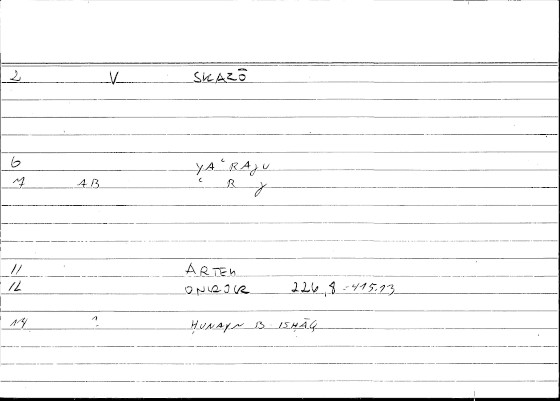 2 V SKAZŌ
6 YAʿRAJU
7 AB ʿ R J
11 ARTEM
12 ONIROCR 226,8=415.13
14 ? ḤUNAYN B ISḤĀQ